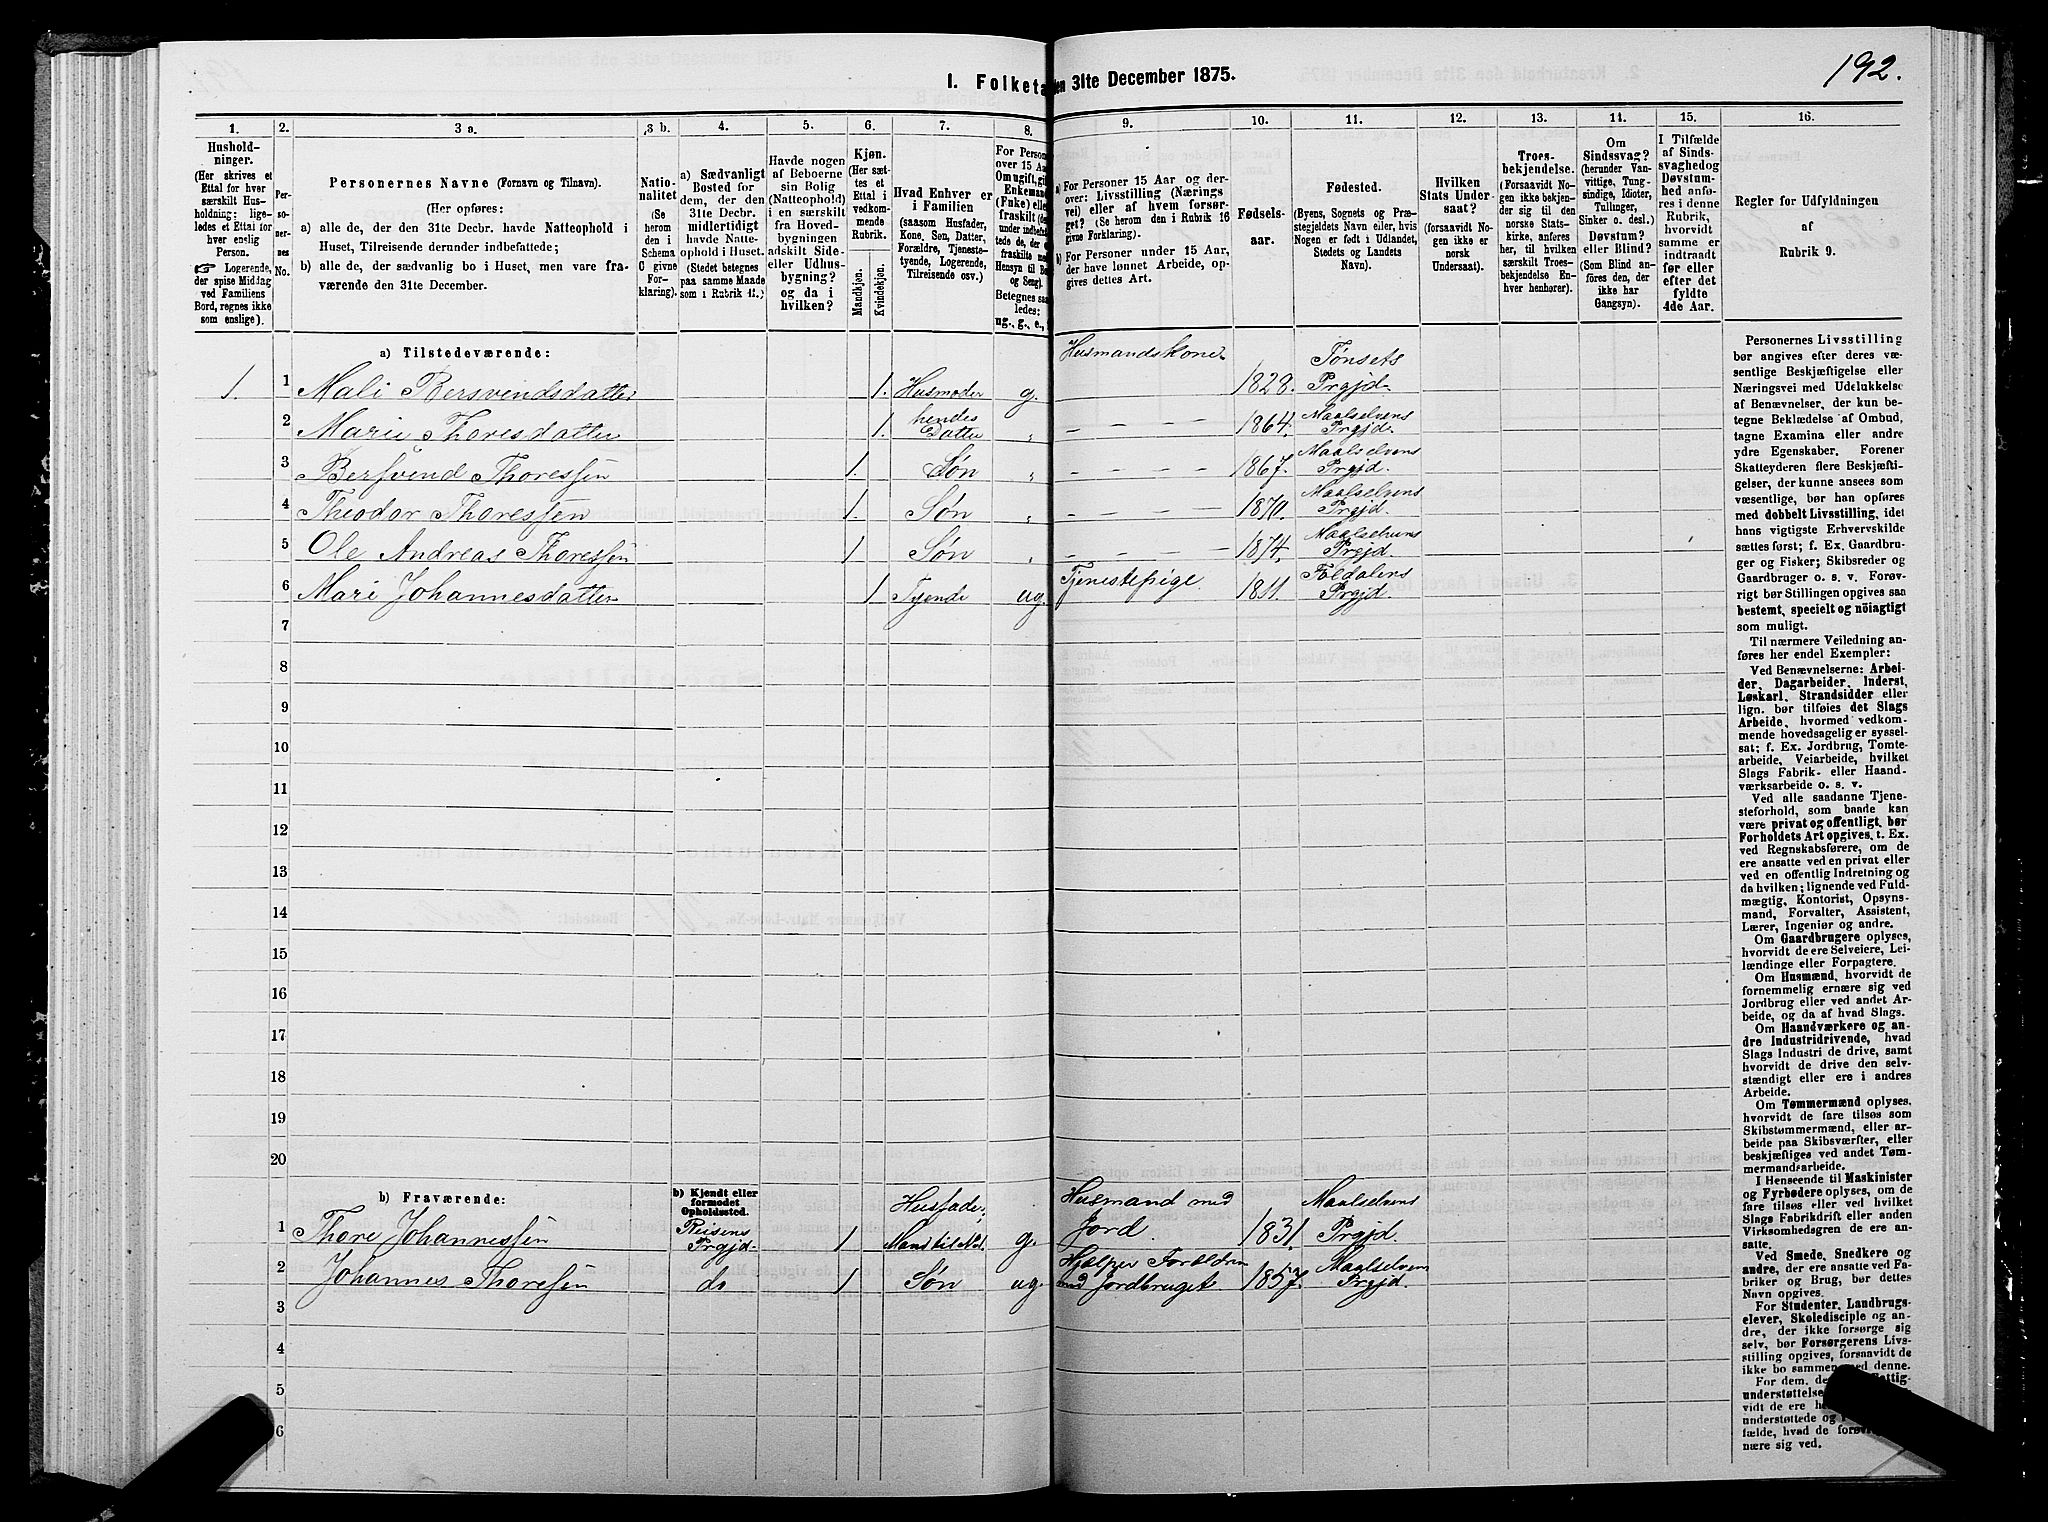 192.
I. Folketa
den 31te December 1875.
1.
2.
3 a.
3 b.
4.
5.
6.
7.
8.
9.
10.
11.
12.
13.
14.
15.
16.
Hushold-
ninger.
(Her skrives et
Ettal for hver
særskilt Hus-
holdning; lige-
ledes et Ettal for
hver enslig
Person.
☞ Logerende,
der spise Middag
ved Familiens
Bord, regnes ikke
som enslige).
Per-
so-
ner-
nes
No.
Personernes Navne (Fornavn og Tilnavn).
(Her opføres:
a) alle de, der den 31te Decbr. havde Natteophold i
Huset, Tilreisende derunder indbefattede;
b) alle de, der sædvanlig bo i Huset, men vare fra-
værende den 31te December.
Natio-
nalitet
(Se
herom
den i
Schema
C givne
For-
klaring).
a) Sædvanligt
Bosted for
dem, der den
31te Decbr.
midlertidigt
havde Natte-
ophold i Huset.
(Stedet betegnes
paa samme Maade
som i Rubrik 11.)
Havde nogen
af Beboerne
sin Bolig
(Natteophold)
i en særskilt
fra Hoved-
bygningen
adskilt Side-
eller Udhus-
bygning?
og da i
hvilken?
Kjøn.
(Her sæt-
tes et
Ettal i
vedkom-
mende
Rubrik.
Mandkjøn.
Kvindekjøn.
Hvad Enhver er
i Familien
(saasom Husfader,
Kone, Søn, Datter,
Forældre, Tjeneste-
tyende, Logerende,
Tilreisende osv.)
For Person
over 15 Aa
Om ugift, gif
Enkeman
(Fuke) elle
fraskilt (de
under indbefat
tede de, der e
fraskilte me
Hensyn til Bo
og Seng).
Betegnes saa
ledes:
ug., g., e.,
a) For Personer 15 Aar og der-
over: Livsstilling (Nærings
vei) eller af hvem forsør-
get? (Se herom den i Rubrik 16
givne Forklaring).
b) For Personer under 15 Aar,
der have lønnet Arbeide, op-
gives dettes Art.
Fødsels-
aar.
Fødested.
(Byens, Sognets og Præ-
stegjeldets Navn eller, hvis
Nogen er født i Udlandet,
Stedets og Landets
Navn).
Hvilken
Stats Under-
saat?
(forsaavidt No-
gen ikke er
norsk
Undersaat).
Troes-
bekjendelse.
(Forsaavidt No-
gen ikke bekjen-
der sig til den
norske Stats-
kirke, anføres
her, til hvilken
særskilt Troes-
bekjendelse En-
hver henhører).
Om
Sindssvag?
(herunder Van-
vittige, Tung-
sindige, Idioter,
Tullinger,
Sinker o. desl.)
Døvstum?
eller Blind?
(Som Blind an-
føres den, der
ikke har
Gangsyn).
I Tilfælde
af Sinds-
svaghed og
Døvstum-
hed anfø-
res i denne
Rubrik,
hvorvidt
samme er
indtraadt
før eller
efter det
fyldte
4de Aar.
Regler for Udfyldningen
af
Rubrik 9.
a) Tilstedeværende:
1. 1 Mali Bersvendsdatter 1. Husmoder g. Husmandskone 1828. Tønsets Prgjd.
2 Marie Thoresdatter 1. hendes Datter " - - - - 1864. Maalselvens Prgjd.
3 Bersvend Thoressen 1. Søn " - - - - 1867. Maalselvens Prgjd.
4 Theodor Thoressen 1. Søn " - - - - 1870. Maalselvens Prgjd.
5 Ole Andreas Thoressen 1 Søn " - - - - 1874. Maalselvens Prgjd.
6 Mari Johannesdatter 1 Tyende ug. Tjenestepige 1811. Foldalens Prgjd.
7
8
9
10
11
12
13
14
15
16
17
18
19
20
b) Fraværende:
b) Kjendt eller
formodet
Opholdssted.
1 Thore Johannessen Reisens Prgjd. 1 Husfader, Mand til No1. g. Husmand med Jord. 1831. Maalselvens Prgjd.
2 Johannes Thoresen do 1 Søn ug. Hjælper Forældren med Jordbruget 1857. Maalselvens Prgjd.
3
4
5
6
Personernes Livsstilling
bør angives efter deres væ-
sentlige Beskjæftigelse eller
Næringsvei med Udelukkelse
af Benævnelser, der kun be-
tegne Beklædelse af Ombud,
tagne Examina eller andre
ydre Egenskaber. Forener
Skatteyderen flere Beskjæfti-
gelser, der kunne ansees som
væsentlige, bør han opføres
med dobbelt Livsstilling, idet
hans vigtigste Erhvervskilde
sættes først; f. Ex. Gaardbru-
ger og Fisker; Skibsreder og
Gaardbruger o. s. v. Forøv-
rigt bør Stillingen opgives saa
bestemt, specielt og nöiagtigt
som muligt.
Til nærmere Veiledning an-
føres her endel Exempler:
Ved Benævnelserne: Arbei-
der, Dagarbeider, Inderst,
Løskarl, Strandsidder eller
lign. bør tilføies det Slags
Arbeide, hvormed vedkom-
mende hovedsagelig er syssel-
sat; f. Ex. Jordbrug, Tomte-
arbeide, Veiarbeide, hvilket
Slags Fabrik- eller Haand-
værksarbeide o. s. v.
Ved alle saadanne Tjene-
steforhold, som baade kan
være privat og offentligt, bør
Forholdets Art opgives, t. Ex.
ved Regnskabsførere, om de
ere ansatte ved en privat eller
ved en offentlig Indretning og
da hvilken; lignende ved Fuld-
mægtig, Kontorist, Opsyns-
mand, Forvalter, Assistent,
Lærer, Ingeniør og andre.
Om Gaardbrugere oplyses,
hvorvidt de ere Selveiere, Lei-
lændinge eller Forpagtere.
Om Husmænd, hvorvidt de
fornemmelig ernære sig ved
Jordbrug eller ved andet Ar-
beide, og da af hvad Slags.
Om Haandværkere og an-
dre Industridrivende, hvad
Slags Industri de drive, samt
hvorvidt de drive den selv-
stændigt eller ere i andres
Arbeide.
Om Tømmermænd oplyses,
hvorvidt de fare tilsøs som
Skibstømmermænd, eller ar-
beide paa Skibsværfter, eller
beskjæftiges ved andet Tøm-
mermandsarbeide.
I Henseende til Maskinister
og Fyrbødere oplyses, om de
fare tilsøs eller ved hvilket
Slags Fabrikdrift eller anden
Virksomhedsgren de ere an-
satte.
Ved Smede, Snedkere og
andre, der ere ansatte ved Fa-
briker og Brug, bør dettes
Navn opgives.
For Studenter, Landbrugs-
elever, Skoledisciple og an-
dre, der ikke forsørge sig
selv, bør Forsørgerens Livs-
stilling opgives, forsaavidt de
ikke bo sammen med denne.
For dem, de Fattig-
understøttelse
vidt de ere h
understøttede og
fælde, hvad de forøv
nære sig ved.